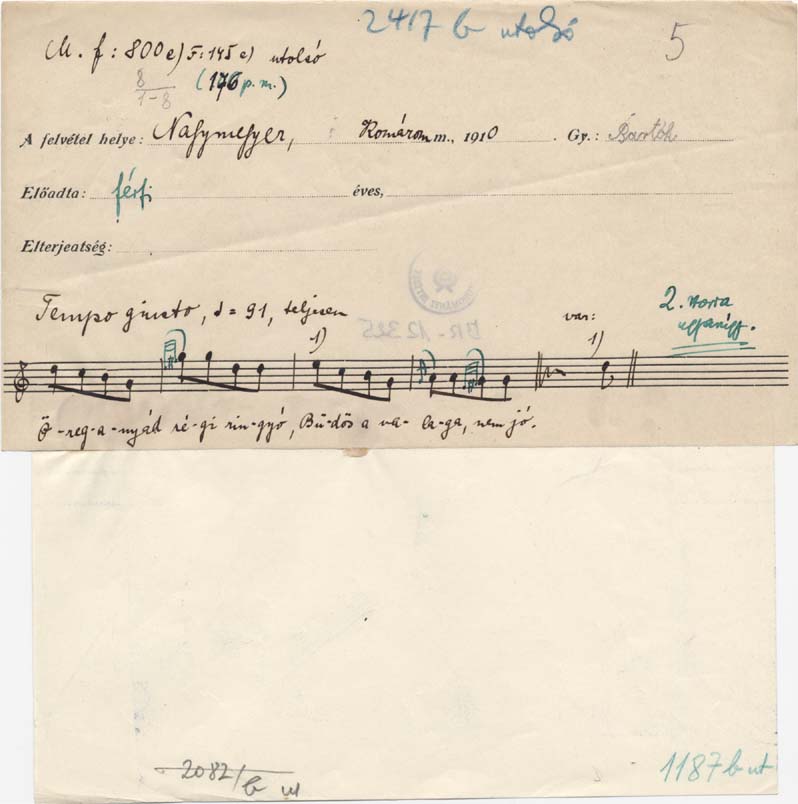 2417 b utolsó
5
M. f: 800e) F: 145 e) utolsó
8
1-8
(176 p. m.)
A felvétel helye: Nagymegyer, Komárom m., 1910. Gy.: Bartók
Előadta: férfi éves,
Elterjeatség:
Tempo giusto, ♩ = 91, teljesen
var:
2. vorra
1)
1)
Ö-reg-a-nyád ré-gi rin-gyó, Bü-dös a va-la-ga, nem jó.
2082/b ut
1187 b ut